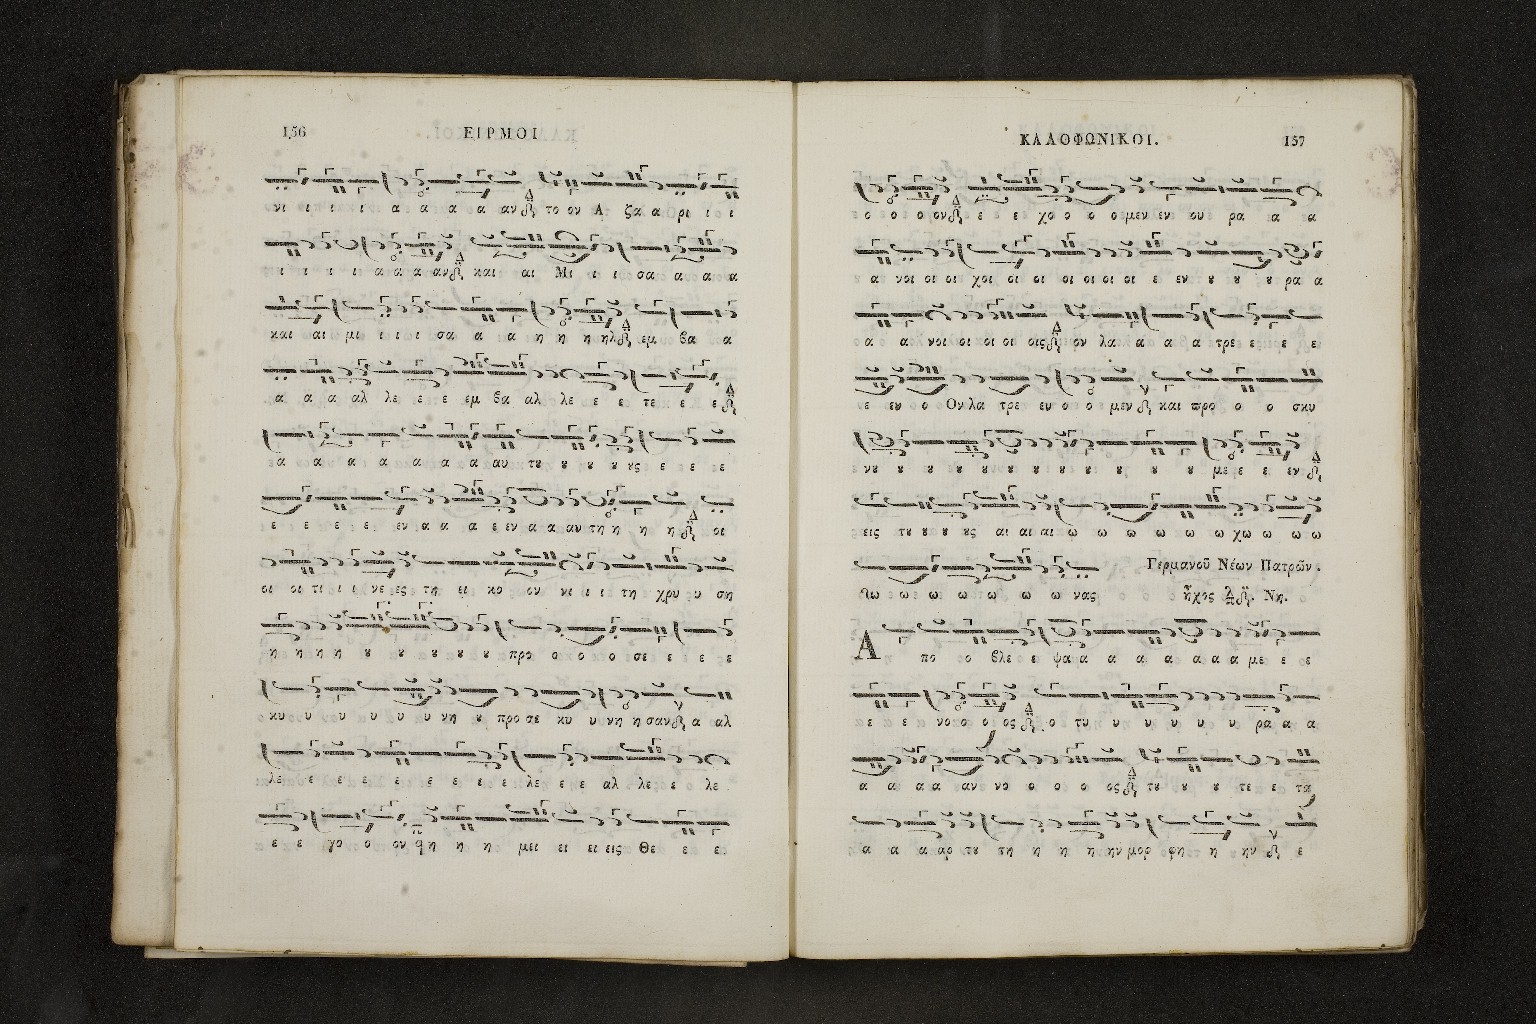 156 ΕΙΡΜΟΙ
νι ι ι ι α α α α αν το ον Α ζα α ρι ι ι
ι ι ι ι α α α αν και αι Μι ι ι σα α α α
και αι μι ι ι ι σα α α η η η ηλ εμ βα α
α α α αλ λε ε ε εμ βα αλ λε ε ε τε ε ε
α α α α α α α αυ τȣ ȣ ȣ ȣ ȣς ε ε ε
ε ε ε ε εν α α α ε εν α α αυ τη η η η οι
οι οι τι ι ι νε ες τη ει κο ον νι ι ι τη χρυ υ ση
η η η η ȣ ȣ ȣ ȣ ȣ προ ο ο ο σε ε ε ε
κυ υ υ υ υ υ νη ȣ προ σε κυ υ νη η σαν α αλ
λε ε ε ε ε ε ε ε ε λε ε ε αλ λε ε ε λε
ε ε γο ο ον η η η μει ει ει εις Θε ε ε
ΚΑΛΟΦΩΝΙΚΟΙ. 157
ο ο ο ον ε ε χο ο ο ο μεν εν ου ρα α α
α νοι οι οι χοι οι οι οι οι οι οι ε εν ȣ ȣ ȣ ρα α
α α νοι οι οι οι οις ον λα α α α τρε ε ε ε
ε ευ ο Ον λα τρε ευ ο ο μεν και προ ο ο σκυ
νȣ ȣ ȣ ȣ ȣ ȣ ȣ ȣ ȣ ȣ ȣ ȣ με ε ε εν
εις τȣ ȣ ȣ ȣς αι αι αι ω ω ω ω ω ω χω ω ω ω
ω ω ω ω ω ω ω νας
Γερμανοῦ Νέων Πατρῶν.
ἦχος Νη.
Α πο ο βλε ε ψα α α α α α α α με ε ε
ε ε νο ο ο ος ο τυ υ υ υ υ υ ρα α α
α α α α αν νο ο ο ο ος τȣ ȣ ȣ τε ε τα
α α α αρ τυ τη η η η ην μορ φη η ην ε